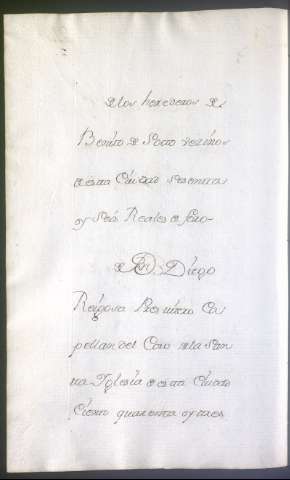 de los herederos de
Benito de Soto vezinos
de esta Ciudad sesenta
y seis Reales de
de Dn. Diego
Reigosa Presvitero Ca
pellan del Coro de la San
ta Iglesia de esta Ciudad
Ciento quarenta y tres